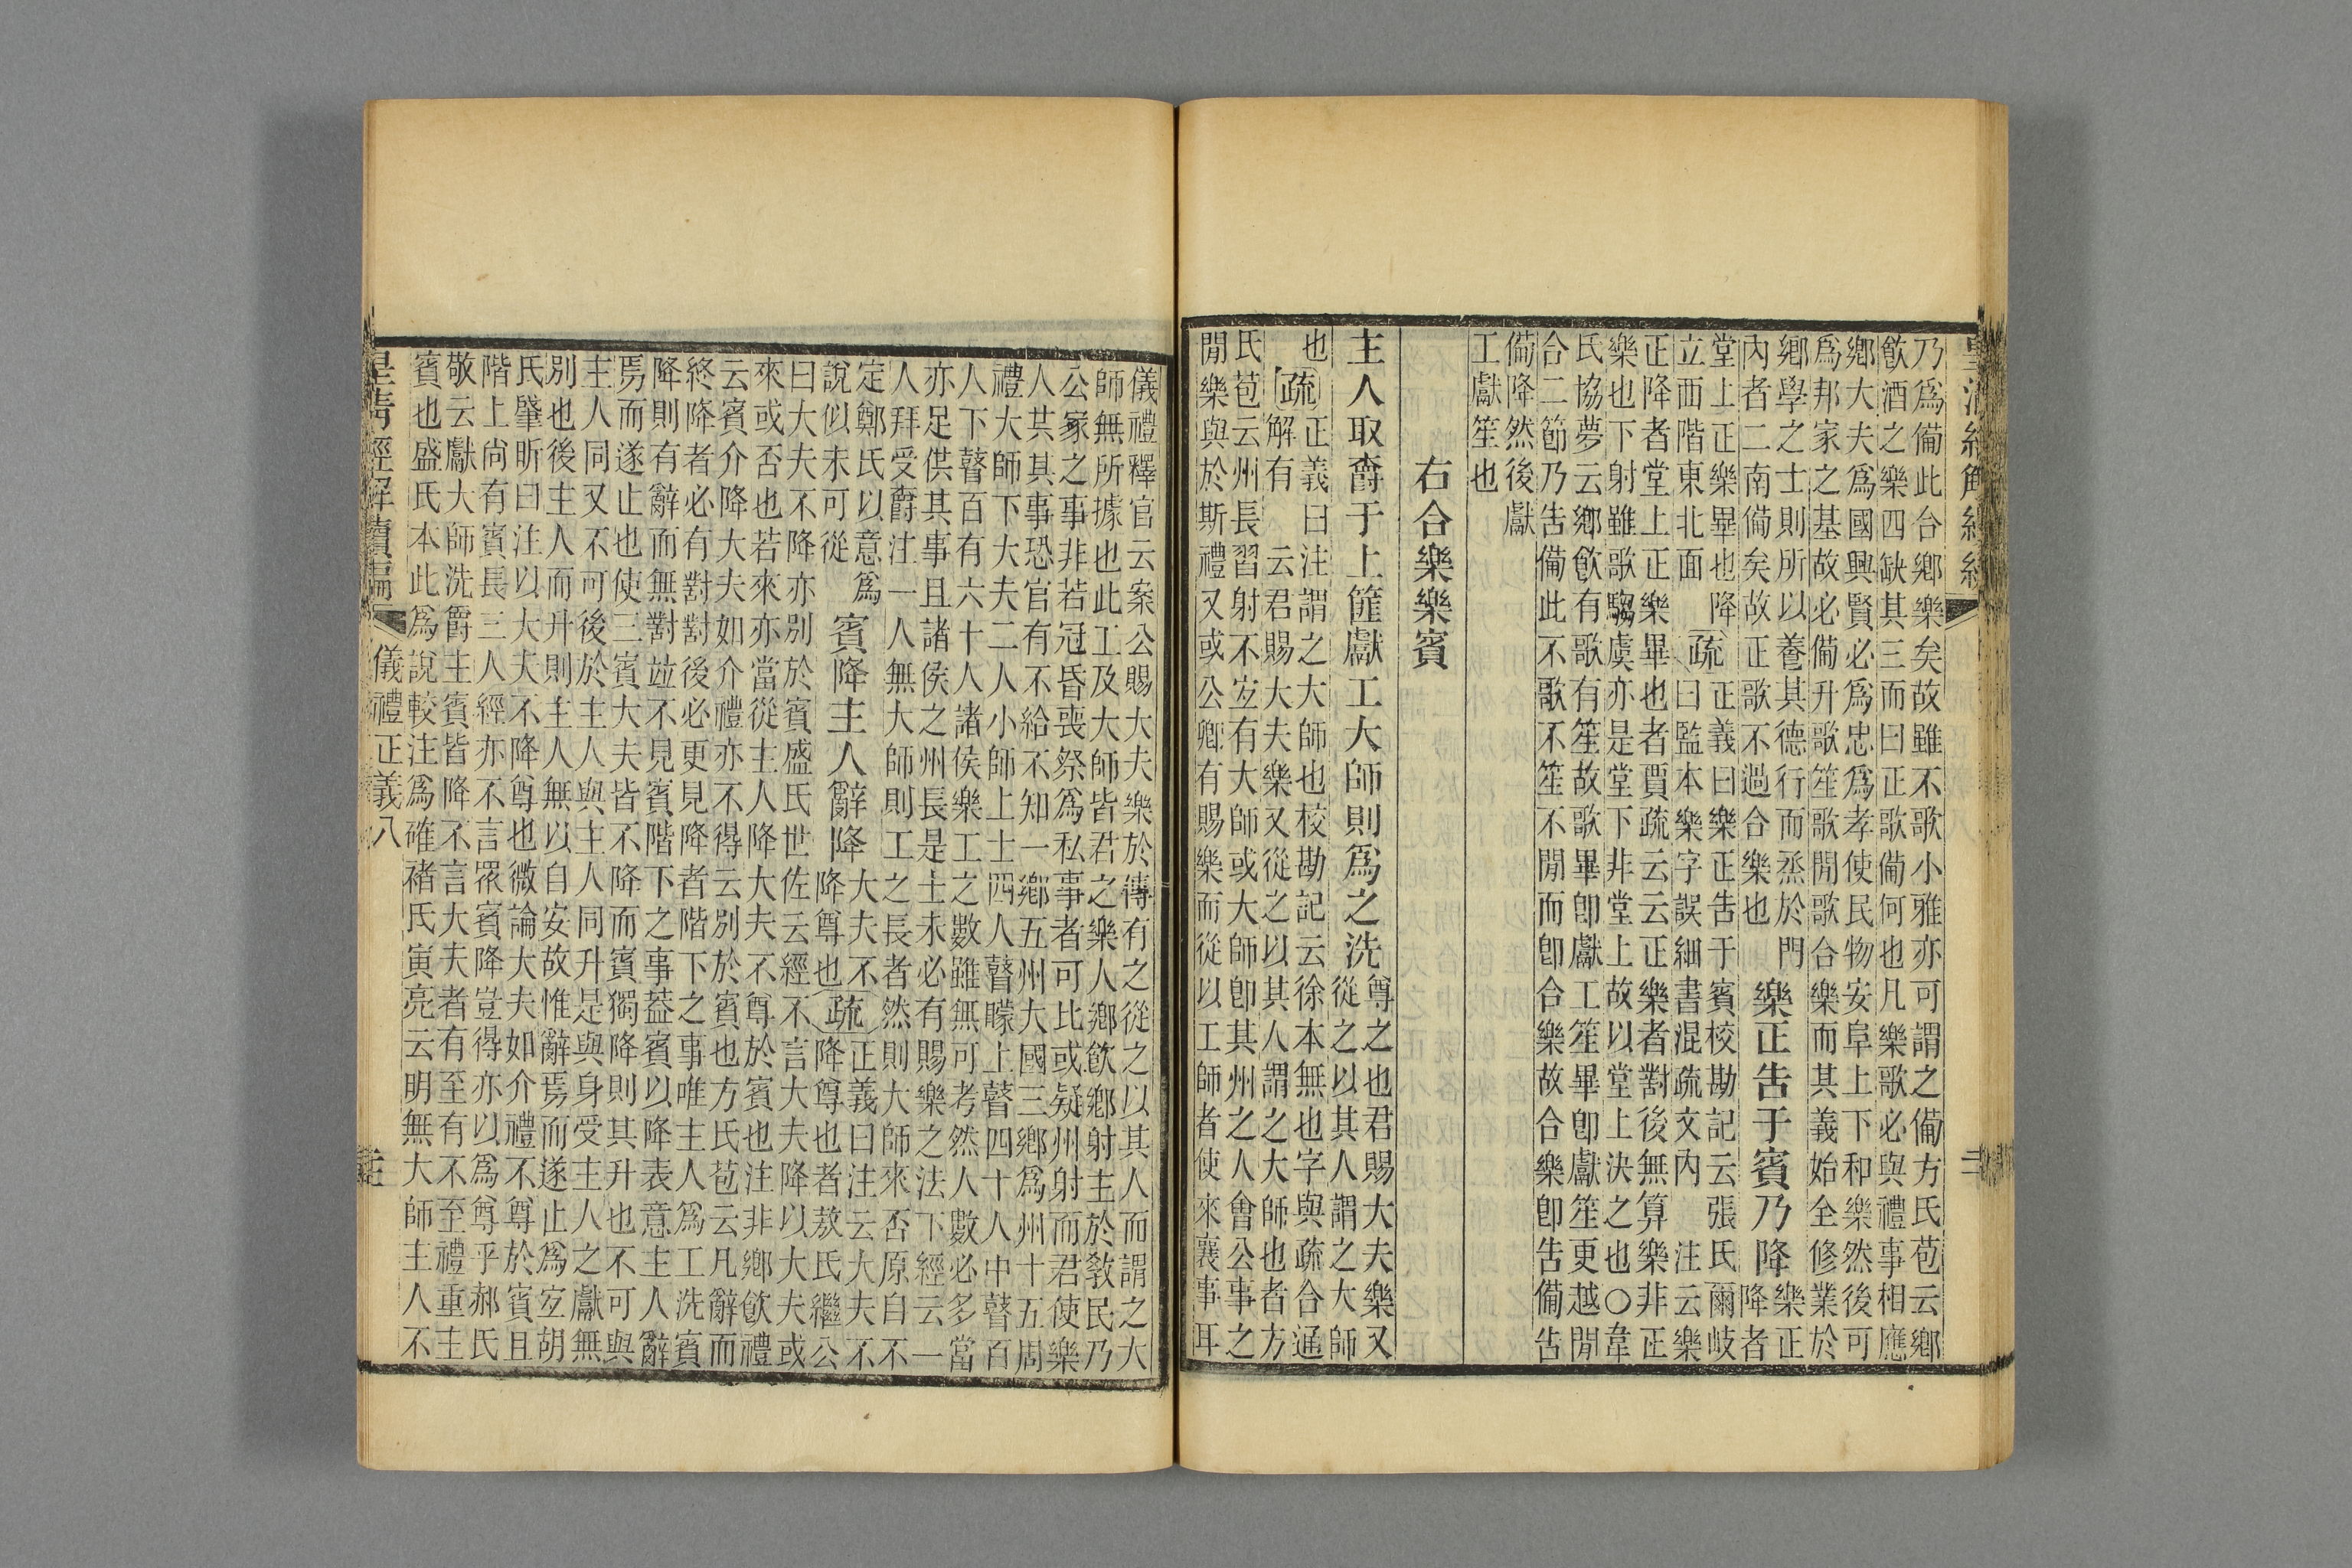 乃爲備此合鄉樂矣故雖不歌小雅亦可謂之備方氏苞云鄉
飮酒之樂四缺其三而曰正歌備何也凡樂歌必與禮事相應
鄉大夫爲國興賢必爲忠爲孝使民物安阜上下和樂然後可
爲邦家之基故必備升歌笙歌閒歌合樂而其義始全修業於
鄉學之士則所以養其德行而烝於門
內者二南備矣故正歌不過合樂也
樂正告于賓乃降
樂正
降者
堂上正樂畢也降
立西階東北面
疏
正義曰樂正告于賓校勘記云張氏爾岐
曰監本樂字誤細書混疏文內 注云樂
正降者堂上正樂畢也者賈疏云云正樂者對後無算樂非正
樂也下射雖歌騶虞亦是堂下非堂上故以堂上決之也○韋
氏協夢云鄉飮有歌有笙故歌畢卽獻工笙畢卽獻笙更越閒
合二節乃告備此不歌不笙不閒而卽合樂故合樂卽告備告
備降然後獻
工獻笙也
右合樂樂賓
主人取爵于上篚獻工大師則爲之洗
尊之也君賜大夫樂又
從之以其人謂之大師
也
疏
正義曰注謂之大師也校勘記云徐本無也字與疏合通
解有 云君賜大夫樂又從之以其人謂之大師也者方
氏苞云州長習射不宜有大師或大師卽其州之人會公事之
閒樂與於斯禮又或公卿有賜樂而從以工師者使來襄事耳
儀禮釋官云案公賜大夫樂於傳有之從之以其人而謂之大
師無所據也此工及大師皆君之樂人鄉飮鄉射主於敎民乃
公家之事非若冠昏喪祭爲私事者可比或疑州射而君使樂
人其其事恐官有不給不知一鄉五州大國三鄉爲州十五周
禮大師下大夫二人小師上士四人瞽矇上瞽四十人中瞽百
人下瞽百有六十人諸侯樂工之數雖無可考然人數必多當
亦足供其事且諸侯之州長是士未必有賜樂之法下經云一
人拜受爵注一人無大師則工之長者然則大師來否原自不
定鄭氏以意爲
說似未可從
賓降主人辭降
大夫不
降尊也
疏
正義曰注云大夫不
降尊也者敖氏繼公
曰大夫不降亦別於賓盛氏世佐云經不言大夫降以大夫或
來或否也若來亦當從主人降大夫不尊於賓也注非鄉飮禮
云賓介降大夫如介禮亦不得云別於賓也方氏苞云凡辭而
終降者必有對對後必更見降者階下之事唯主人爲工洗賓
降則有辭而無對竝不見賓階下之事葢賓以降表意主人辭
焉而遂止也使三賓大夫皆不降而賓獨降則其升也不可與
主人同又不可後於主人與主人同升是與身受主人之獻無
別也後主人而升則主人無以自安故惟辭焉而遂止爲宜胡
氏肇昕曰注以大夫不降尊也微論大夫如介禮不尊於賓且
階上尚有賓長三人經亦不言眾賓降豈得亦以爲尊乎郝氏
敬云獻大師洗爵主賓皆降不言大夫者有至有不至禮重主
賓也盛氏本此爲說較注爲確褚氏寅亮云明無大師主人不
皇清經解續編
儀禮正義八